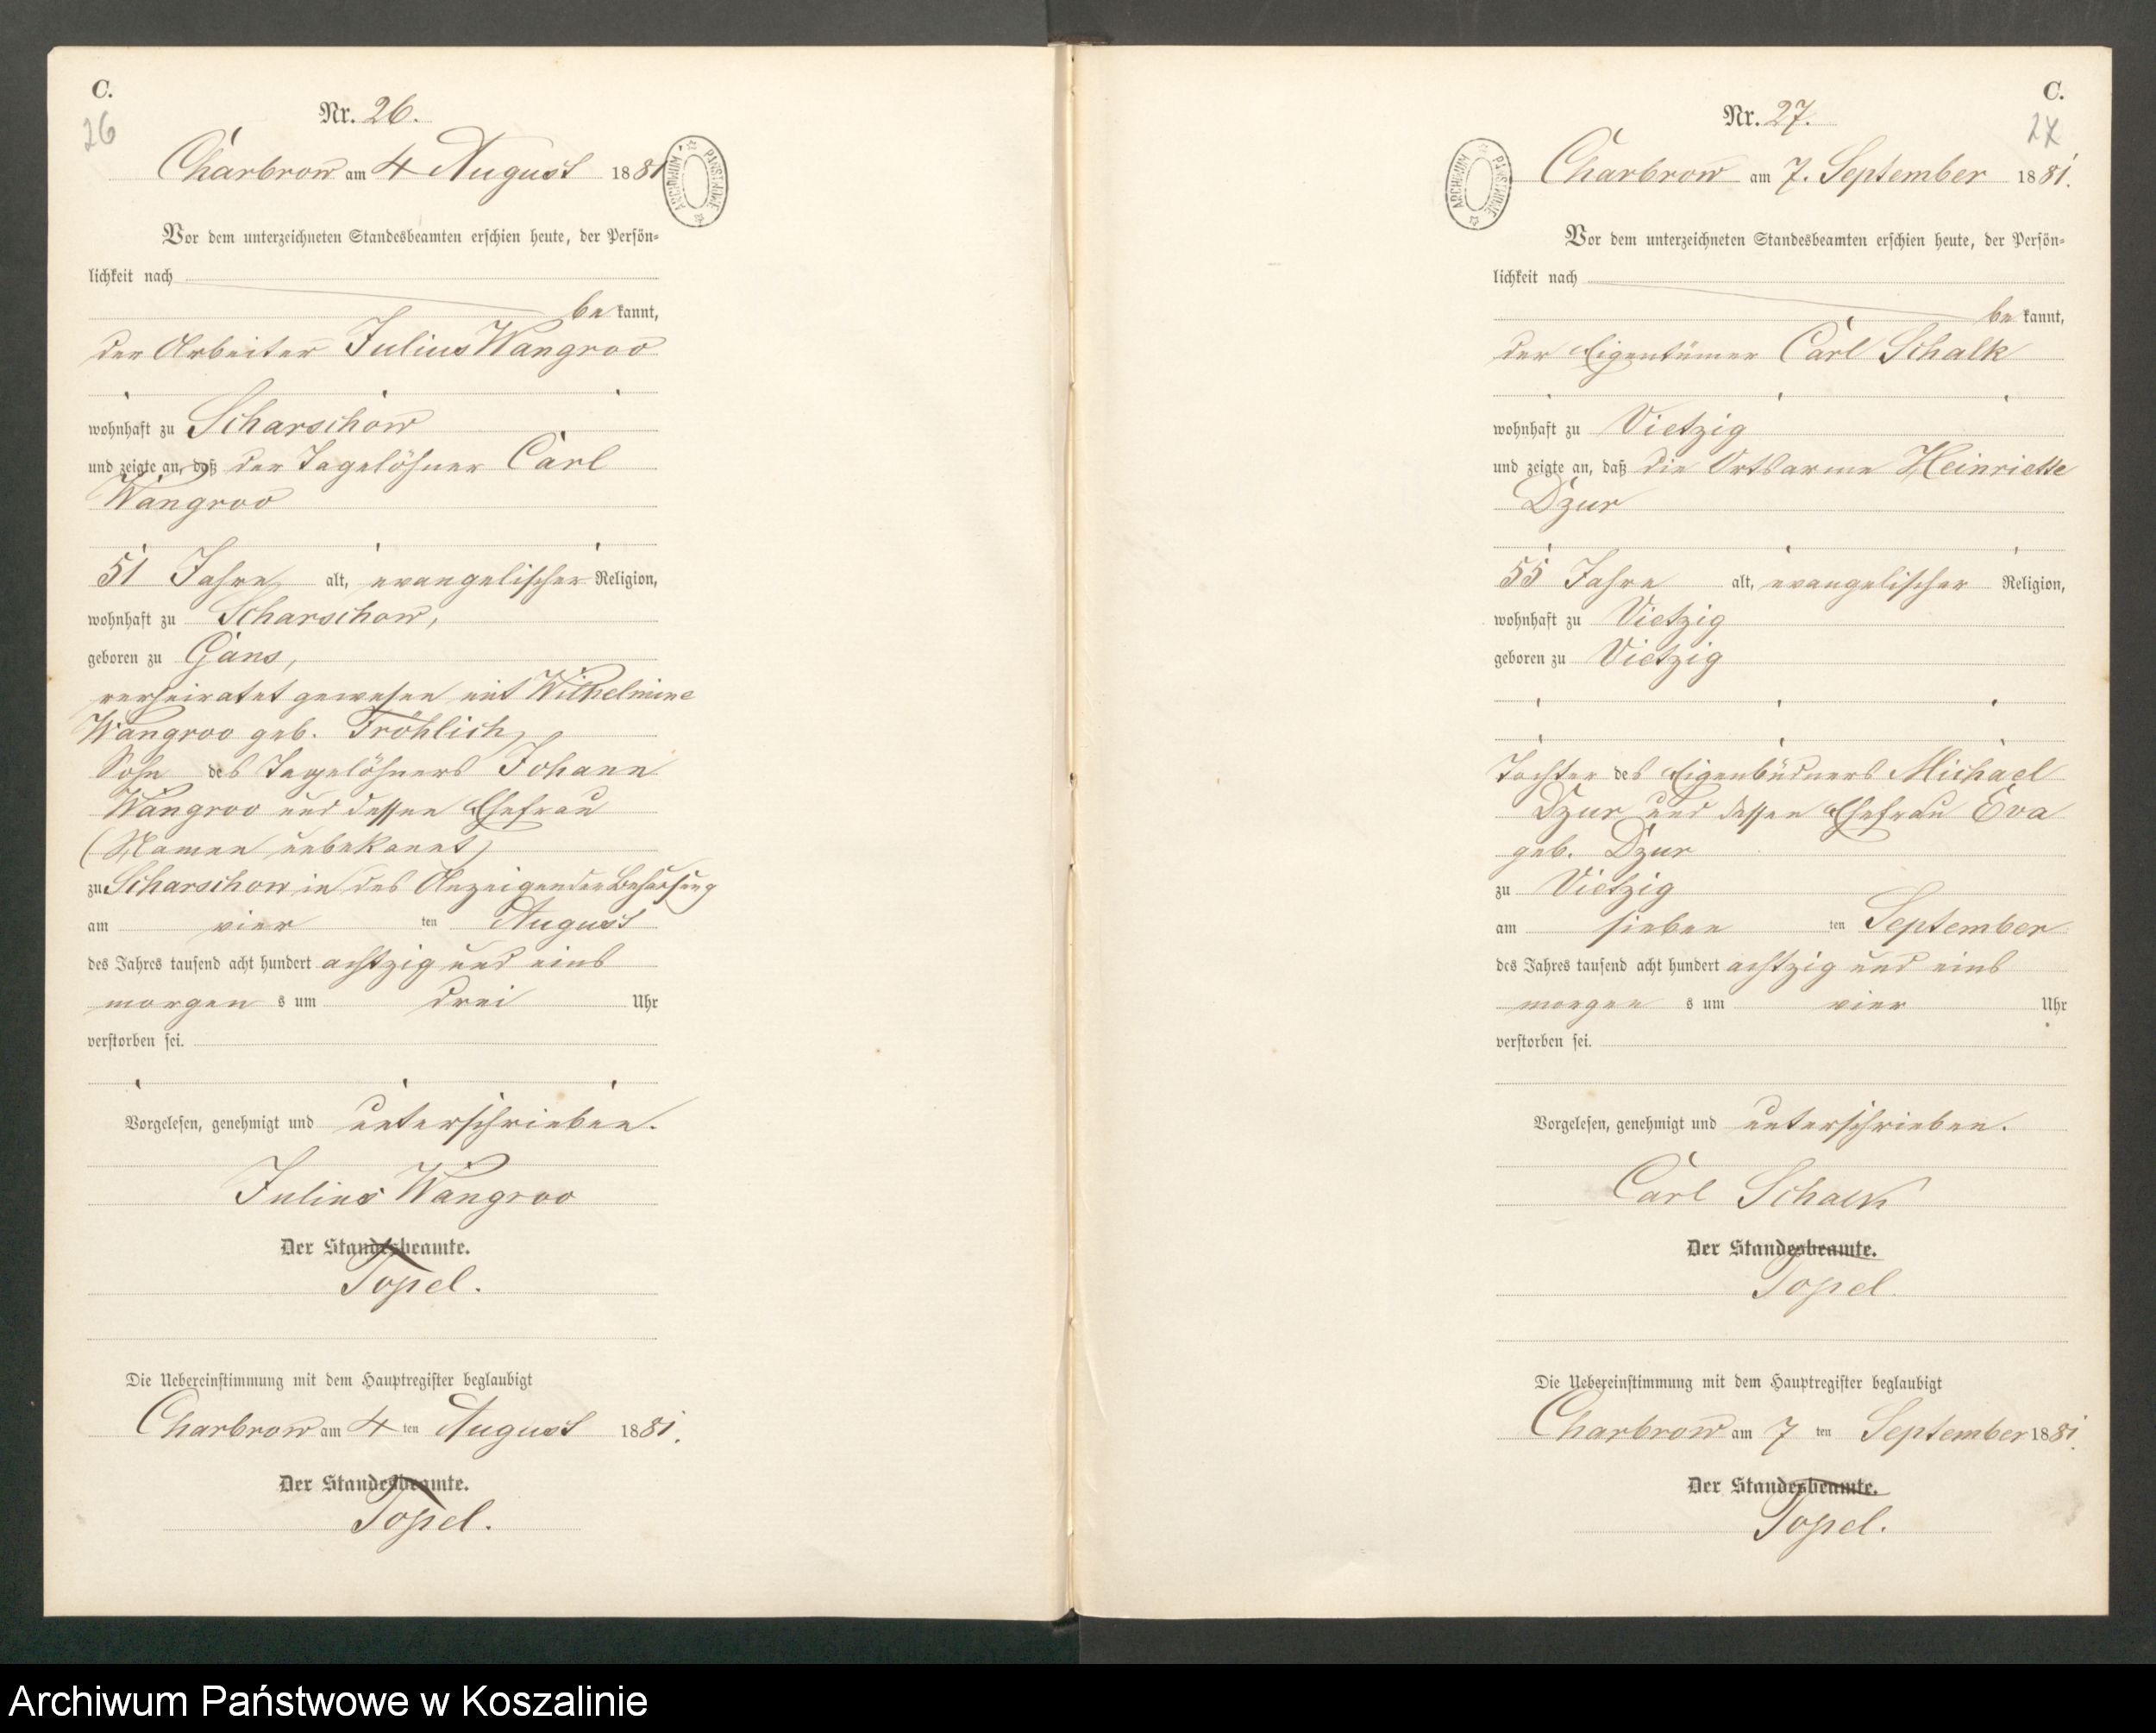 C.
26
Nr. 26.
Charbrow am 4 August 1881
ARCHIWUM PAŃSTWOWE
Vor dem unterzeichneten Standesbeamten erschien heute, der Persön-
lichkeit nach
be kannt,
der Arbeiter Julius Wangroo
wohnhaft zu Scharschow
und zeigte an, daß der Tagelöhner Carl
Wangroo
51 Jahre alt, evangelischer Religion,
wohnhaft zu Scharschow,
geboren zu Gans,
verheiratet gewesen mit Wilhelmine
Wangroo geb. Fröhlich,
Sohn des Tagelöhners Johann
Wangroo und dessen Ehefrau
(Namen unbekannt)
zu Scharschow in des Anzeigenden Behausung
am vier ten August
des Jahres tausend acht hundert achtzig und eins
morgen s um drei Uhr
verstorben sei.
Vorgelesen, genehmigt und unterschrieben.
Julius Wangroo
Der Standesbeamte.
Topel.
Die Uebereinstimmung mit dem Hauptregister beglaubigt
Charbrow am 4 ten August 1881.
Der Standesbeamte.
Topel.
C.
27
Nr. 27.
Charbrow am 7. September 1881.
ARCHIWUM PAŃSTWOWE
Vor dem unterzeichneten Standesbeamten erschien heute, der Persön-
lichkeit nach
be kannt,
der Eigentümer Carl Schalk
wohnhaft zu Vietzig
und zeigte an, daß die Ortsarme Heinriette
Dzur
55 Jahre alt, evangelischer Religion,
wohnhaft zu Vietzig
geboren zu Vietzig
Tochter des Eigenbüdners Michael
Dzur und dessen Ehefrau Eva
geb. Dzur
zu Vietzig
am sieben ten September
des Jahres tausend acht hundert achtzig und eins
morgen s um vier Uhr
verstorben sei.
Vorgelesen, genehmigt und unterschrieben.
Carl Schalk
Der Standesbeamte.
Topel.
Die Uebereinstimmung mit dem Hauptregister beglaubigt
Charbrow am 7 ten September 1881.
Der Standesbeamte.
Topel.
Archiwum Państwowe w Koszalinie